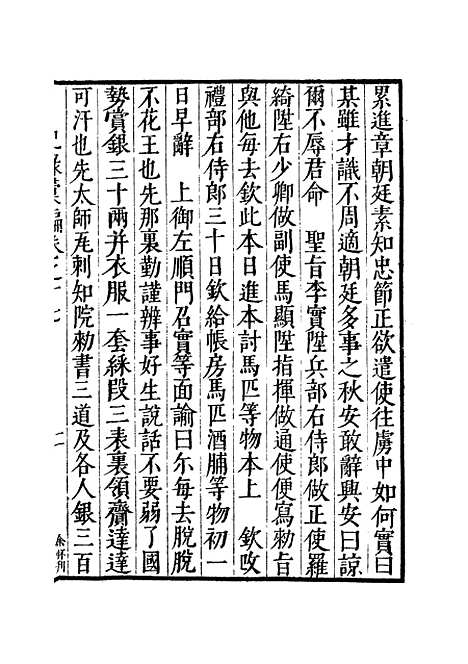 累進章朝廷素知忠節正欲遣使往虜中如何實曰
某雖才識不周適朝廷多事之秋安敢辭興安曰諒
爾不辱君命　聖旨李實陞兵部右侍郎做正使羅
綺陞右少卿做副使馬顯陞指揮做通使便寫勅旨
與他每去欽此本日進本討馬匹等物本上　欽改
禮部右侍郎三十日欽給帳房馬匹酒脯等物初一
日早辭　上御左順門召實等面諭曰尓每去脫脫
不花王也先那裏勤謹辨事好生說話不要弱了國
勢賞銀三十兩并衣服一套綵段三表裏領齎達達
可汗也先太師瓦剌知院勅書三道及各人銀三百
卷之十七